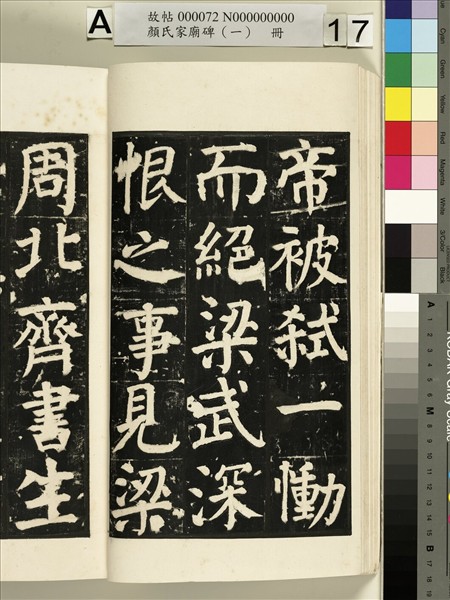 A
故帖 000072 N000000000
顏氏家廟碑（一） 冊
17
帝被弒一慟
而絕梁武深
恨之事見梁
周北齊書生
Cyan
Green
Yellow
Red
Magenta
White
3/Color
Black
A
1
2
3
4
5
6
M
8
9
10
11
12
13
14
15
B
17
18
19